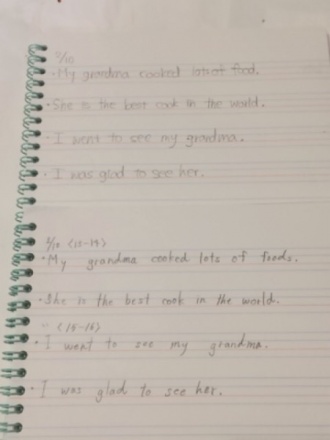 2/10
· My grandma cooked lots of food.
· She is the best cook in the world.
· I went to see my grandma.
· I was glad to see her.
2/10 (12-14)
· My grandma cooked lots of foods.
· She is the best cook in the world.
" (15-16)
· I went to see my grandma.
· I was glad to see her.